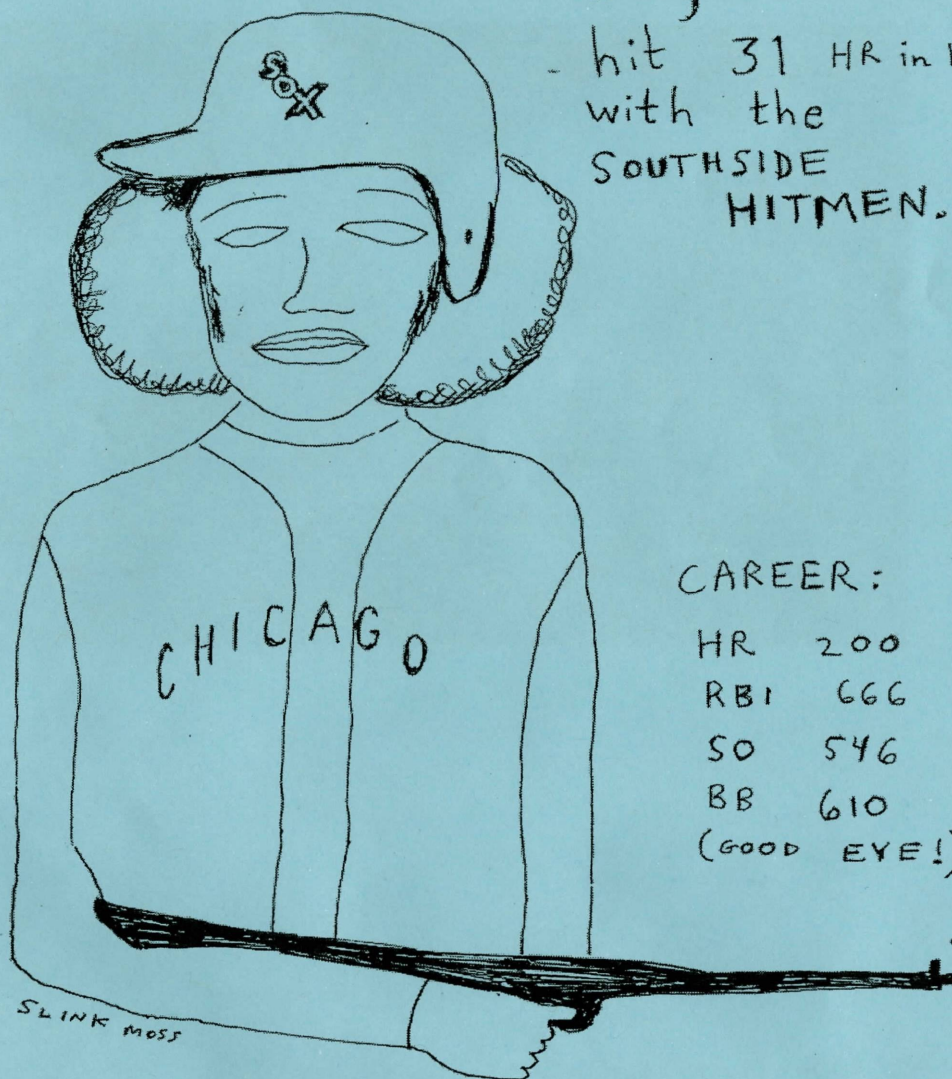 hit 31 HR in
with the
SOUTHSIDE
HITMEN.
SOX
CHICAGO
CAREER:
HR 200
RBI 666
SO 546
BB 610
(GOOD EYE!)
SLINK MOSS